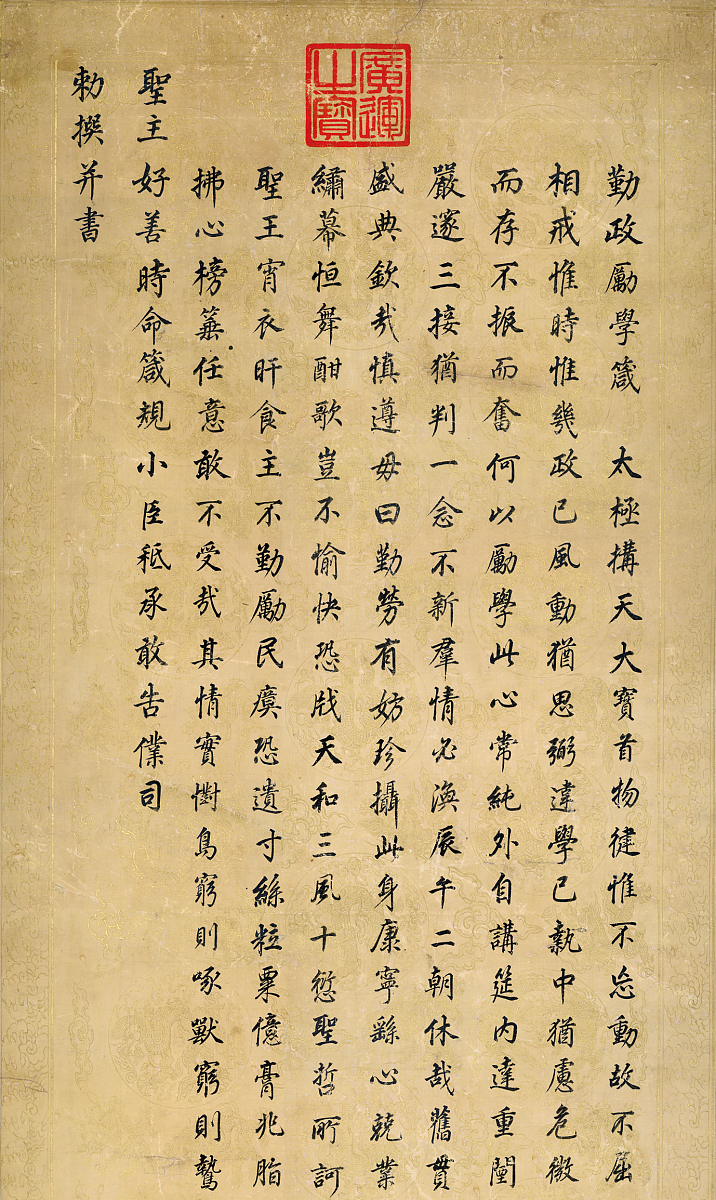 廣運之寶
勤政勵學箴 太極搆天大寶首物徤惟不忘動故不屈
相戒惟時惟幾政已風動猶思弼違學已執中猶慮危微
而存不振而奮何以勵學此心常純外自講筵内達重
嚴邃三接猶判一念不新羣情必渙辰午二朝休哉舊貫
盛典欽哉慎遵毋曰勤勞有妨珍攝此身康寧繇心兢業
繡幕恒舞酣歌豈不愉快恐戕天和三風十愆聖哲所訶
聖王宵衣旰食主不勤勵民瘼恐遺寸絲粒粟億膏兆脂
拂心榜箠任意敢不受哉其情實懟鳥窮則啄獸窮則鷙
聖主好善時命箴規小臣秪承敢告僕司
勅撰并書